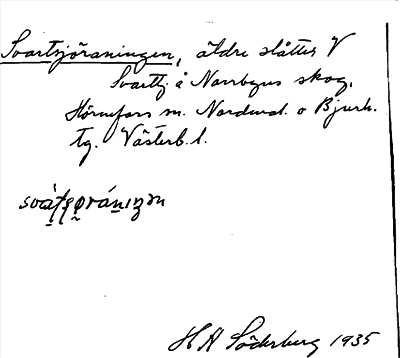 Svartsjöraningen, äldre slåtter V
Svartsj. å Norrbyns skog,
Hörnefors sn. Nordmal. o Bjurh.
tg. Västerb. l.
H A Söderberg 1935